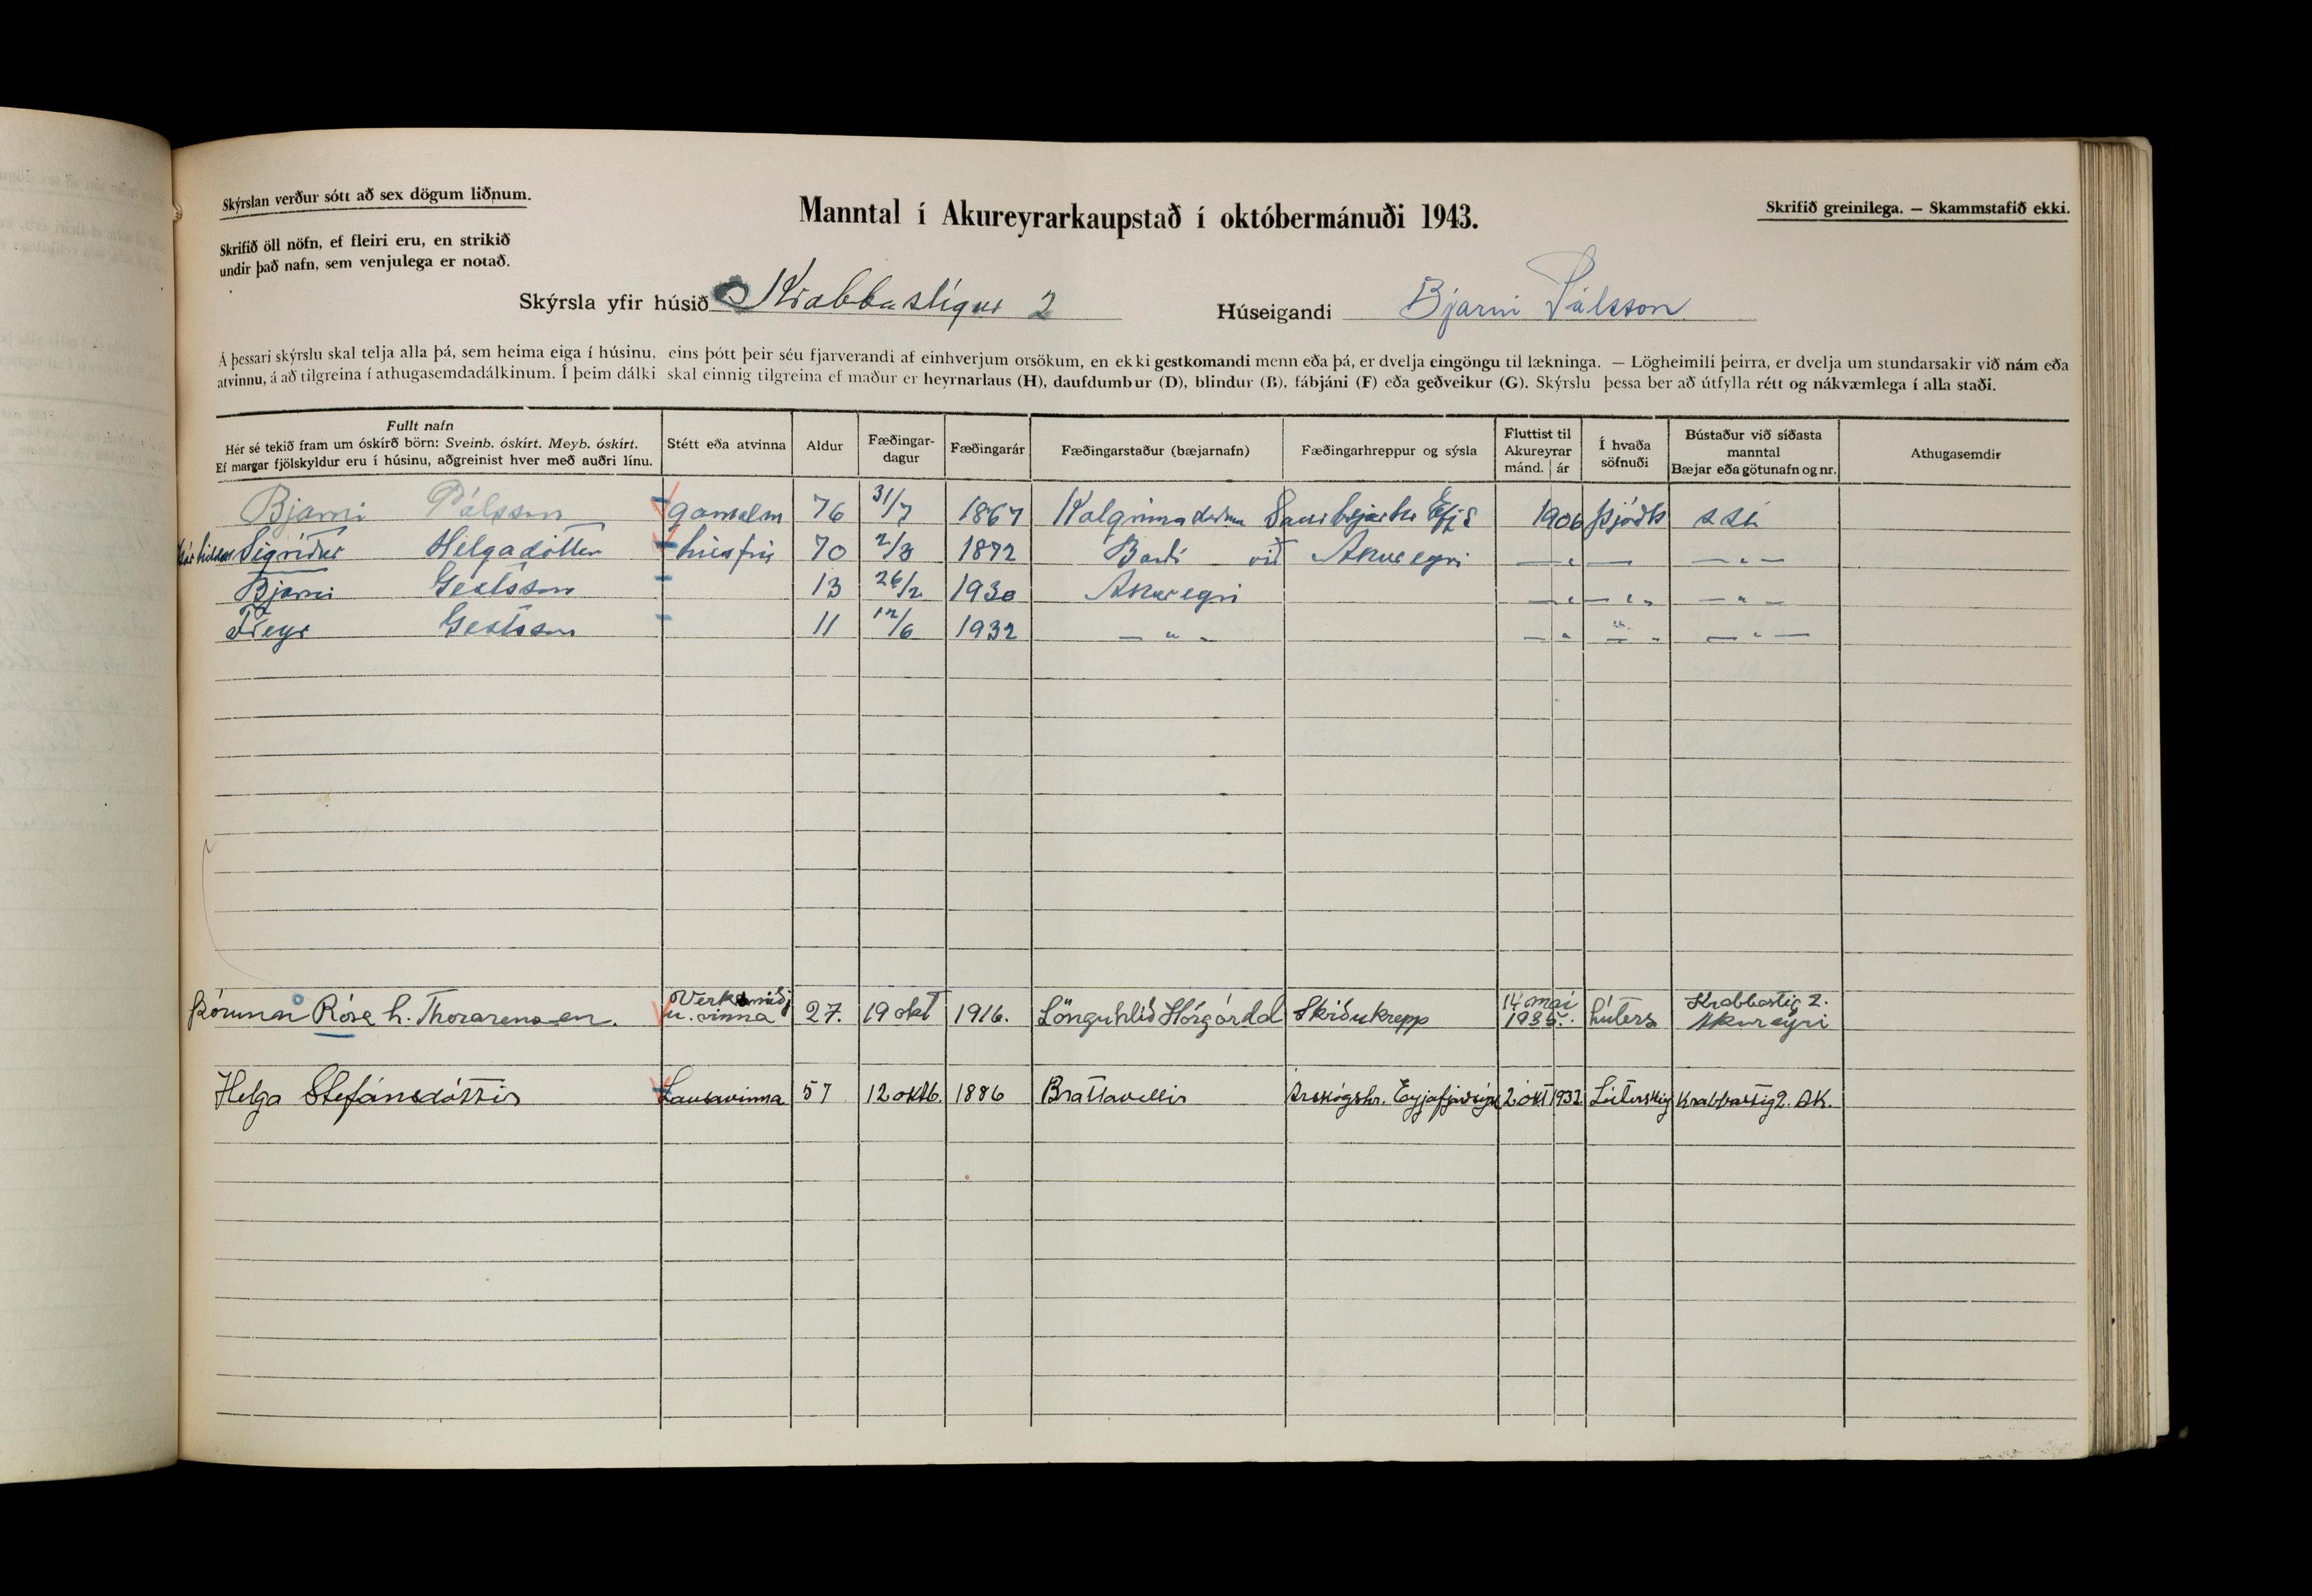 Skýrslan verður sótt að sex dögum liðnum.
Manntal í Akureyrarkaupstað í októbermánuði 1943.
Skrifið greinilega. — Skammstafið ekki.
Skrifið öll nöfn, ef fleiri eru, en strikið
undir það nafn, sem venjulega er notað.
Skýrsla yfir húsið Krabbastígur 2 Húseigandi Bjarni Pálsson
Á þessari skýrslu skal telja alla þá, sem heima eiga í húsinu, eins þótt þeir séu fjarverandi af einhverjum orsökum, en ekki gestkomandi menn eða þá, er dvelja eingöngu til lækninga. — Lögheimili þeirra, er dvelja um stundarsakir við nám eða
atvinnu, á að tilgreina í athugasemdadálkinum. Í þeim dálki skal einnig tilgreina ef maður er heyrnarlaus (H), daufdumbur (D), blindur (B), fábjáni (F) eða geðveikur (G). Skýrslu þessa ber að útfylla rétt og nákvæmlega í alla staði.
Fullt nafn
Hér sé tekið fram um óskírð börn: Sveinb. óskírt. Meyb. óskírt.
Ef margar fjölskyldur eru í húsinu, aðgreinist hver með auðri línu.
Stétt eða atvinna
Aldur
Fæðingar-
dagur
Fæðingarár
Fæðingarstaður (bæjarnafn)
Fæðingarhreppur og sýsla
Fluttist til
Akureyrar
mánd. ár
Í hvaða
söfnuði
Bústaður við síðasta
manntal
Bæjar eða götunafn og nr.
Athugasemdir
Bjarni Pálsson gamalm 76 31/7 1867 1906 Þjóðk
Sigríður Helgadóttir húsfrú 70 2/3 1872 Barði við Akureyri — " — — " —
Bjarni Gestsson 13 26/2 1930 Akureyri — " — " „ — " —
Freyr Gestsson 11 12/6 1932 — " — — " — " — — " —
Þórunn Rósa h. Thorarensen. Verksmiðj
u. vinna 27. 19 okt 1916. Lönguhlíð Hörgárdal Skriðuhrepp 14 maí
1935. Lúters Krabbastíg 2.
Akureyri
Helga Stefánsdóttir Lausavinna 57 12 oktb. 1886 Brattavellir Árskógshr. Eyjafjarðsýs 2 okt 1932. Lúterskig Krabbastíg 2. AK.